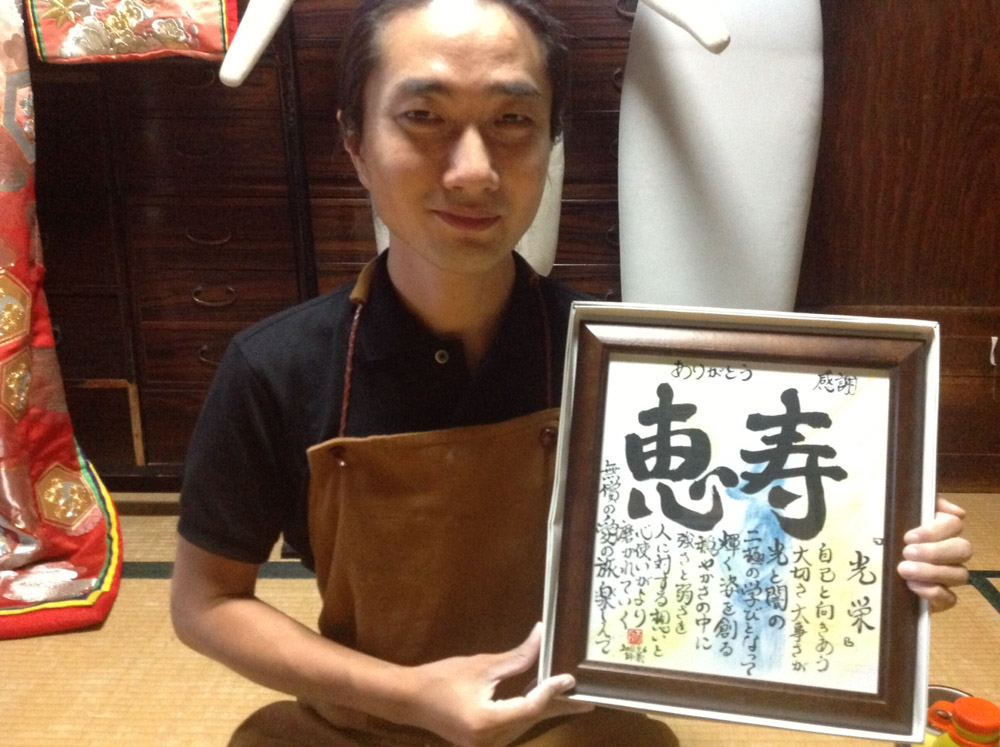 ありがとう
感謝
恵寿
光栄
自己と向きあう
大切さ大事さが
光と闇の
二極の学びとなって
輝く姿を創る
穏やかさの中に
強さと弱さを
人に対する想いと
心使いがより
磨かれていく
無償の愛の旅楽しんで